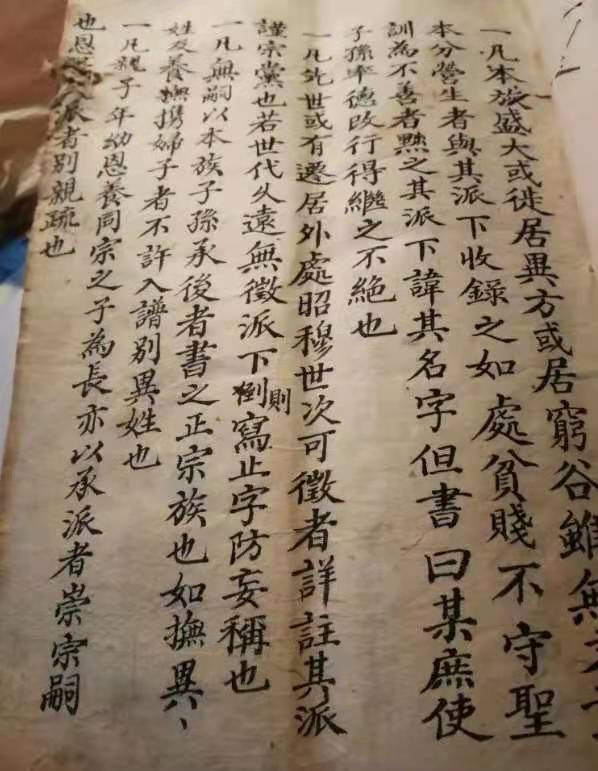 一凡本族盛大或徙居異方或居窮谷雖無
本分營生者與其派下收錄之如處貧賤不守聖
訓為不善者黜之其派下諱其名字但書曰某庶使
子孫率德改行得繼之不絕也
一凡先世或有遷居外處昭穆世次可徵者詳註其派
謹宗黨也若世代久遠無徵派下倒則寫止字防妄稱也
一凡無嗣以本族子孫承後者書之正宗族也如撫異、
姓及養撫携婦子者不許入譜別異姓也
一凡親子年幼恩養同宗之子為長亦以承派者崇宗嗣
也恩派者別親疏也